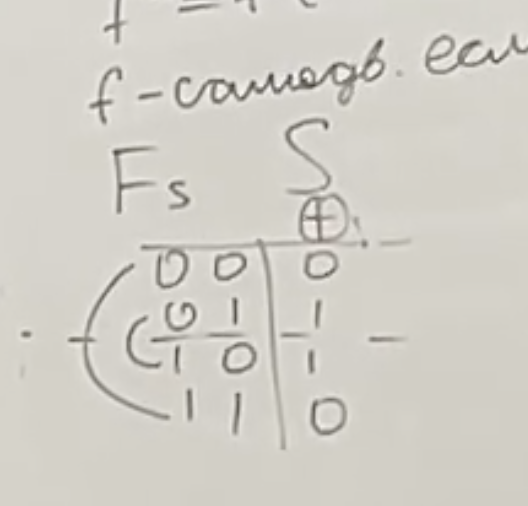 f - самодв. если
Fs S
⊕
0 0 | 0
0 1 | 1
1 0 | 1
1 1 | 0